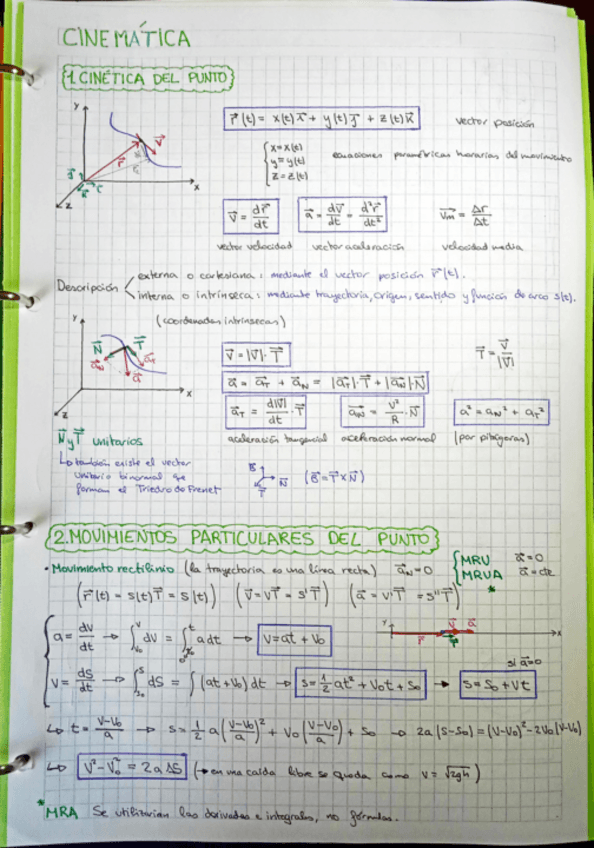 CINEMÁTICA
1. CINÉTICA DEL PUNTO
r⃗(t) = x(t)i⃗ + y(t)j⃗ + z(t)k⃗ vector posición
x=x(t)
y=y(t) ecuaciones paramétricas horarias del movimiento
z=z(t)
v⃗ = dr⃗/dt a⃗ = dv⃗/dt = d²r⃗/dt² v⃗m = Δr/Δt
vector velocidad vector aceleración velocidad media
Descripción
externa o cartesiana: mediante el vector posición r⃗(t).
interna o intrínseca: mediante trayectoria, origen, sentido y función de arco s(t).
(coordenadas intrínsecas)
v⃗ = |v|·T⃗ T⃗ = v⃗/|v⃗|
a⃗ = a⃗T + a⃗N = |a⃗T|·T⃗ + |a⃗N|·N⃗
a⃗T = d|v⃗|/dt · T⃗ a⃗N = v²/R · N⃗ a² = aN² + aT²
N⃗ y T⃗ unitarios aceleración tangencial aceleración normal (por pitágoras)
también existe el vector
unitario binormal que
forman el Triedro de Frenet
B⃗ N⃗ T⃗ (B⃗ = T⃗ x N⃗)
2. MOVIMIENTOS PARTICULARES DEL PUNTO
• Movimiento rectilinio (la trayectoria es una línea recta) a⃗N = 0
MRU a⃗ = 0
MRUA a⃗ = cte
*
(r⃗(t) = s(t)T⃗ = s(t)) (v⃗ = vT⃗ = s'T⃗) (a⃗ = v'T⃗ = s''T⃗)
a = dv/dt → ∫v₀^v dv = ∫^t a dt → v = at + v₀
si a⃗=0
v = ds/dt → ∫s₀^s ds = ∫(at + v₀) dt → s = 1/2 at² + v₀t + s₀ → s = s₀ + vt
↳ t = (v-v₀)/a → s = 1/2 a((v-v₀)/a)² + v₀((v-v₀)/a) + s₀ → 2a(s-s₀) = (v-v₀)² - 2v₀(v-v₀)
↳ v² - v₀² = 2aΔs (→ en una caída libre se queda como v = √2gh)
*MRA Se utilizarían las derivadas e integrales, no fórmulas.